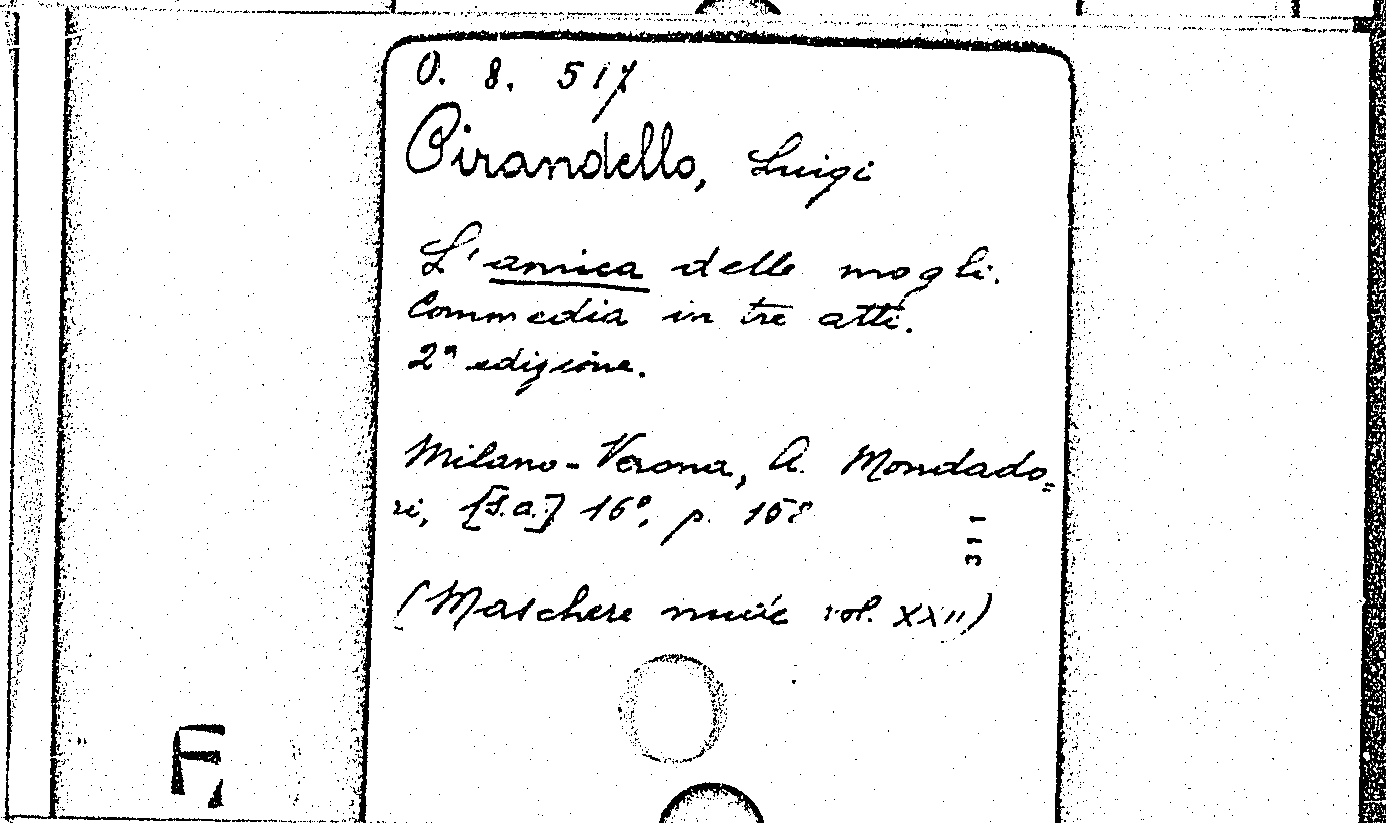 O. 8. 517
Pirandello, Luigi
L'amica delle mogli.
Commedia in tre atti.
2ª edizione.
Milano-Verona, A. Mondado=
ri, [s.a.] 16°, p. 158
311
(Maschere nude vol. XXII)
F